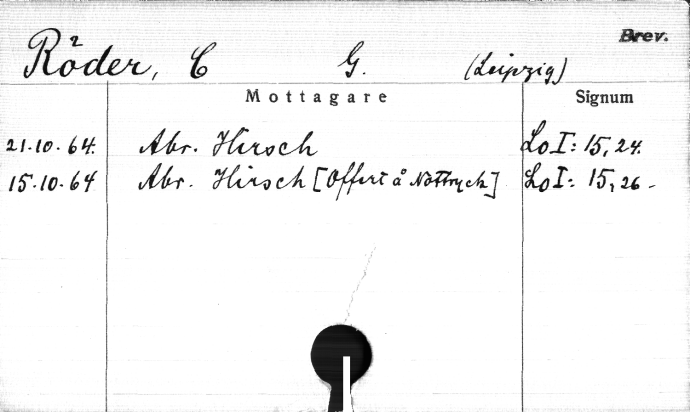 Brev.
Röder, C G. (Leipzig)
Mottagare Signum
21.10.64. Abr. Hirsch LoI: 15, 24.
15.10.64 Abr. Hirsch [Offert å Nottryck] LoI: 15, 26.